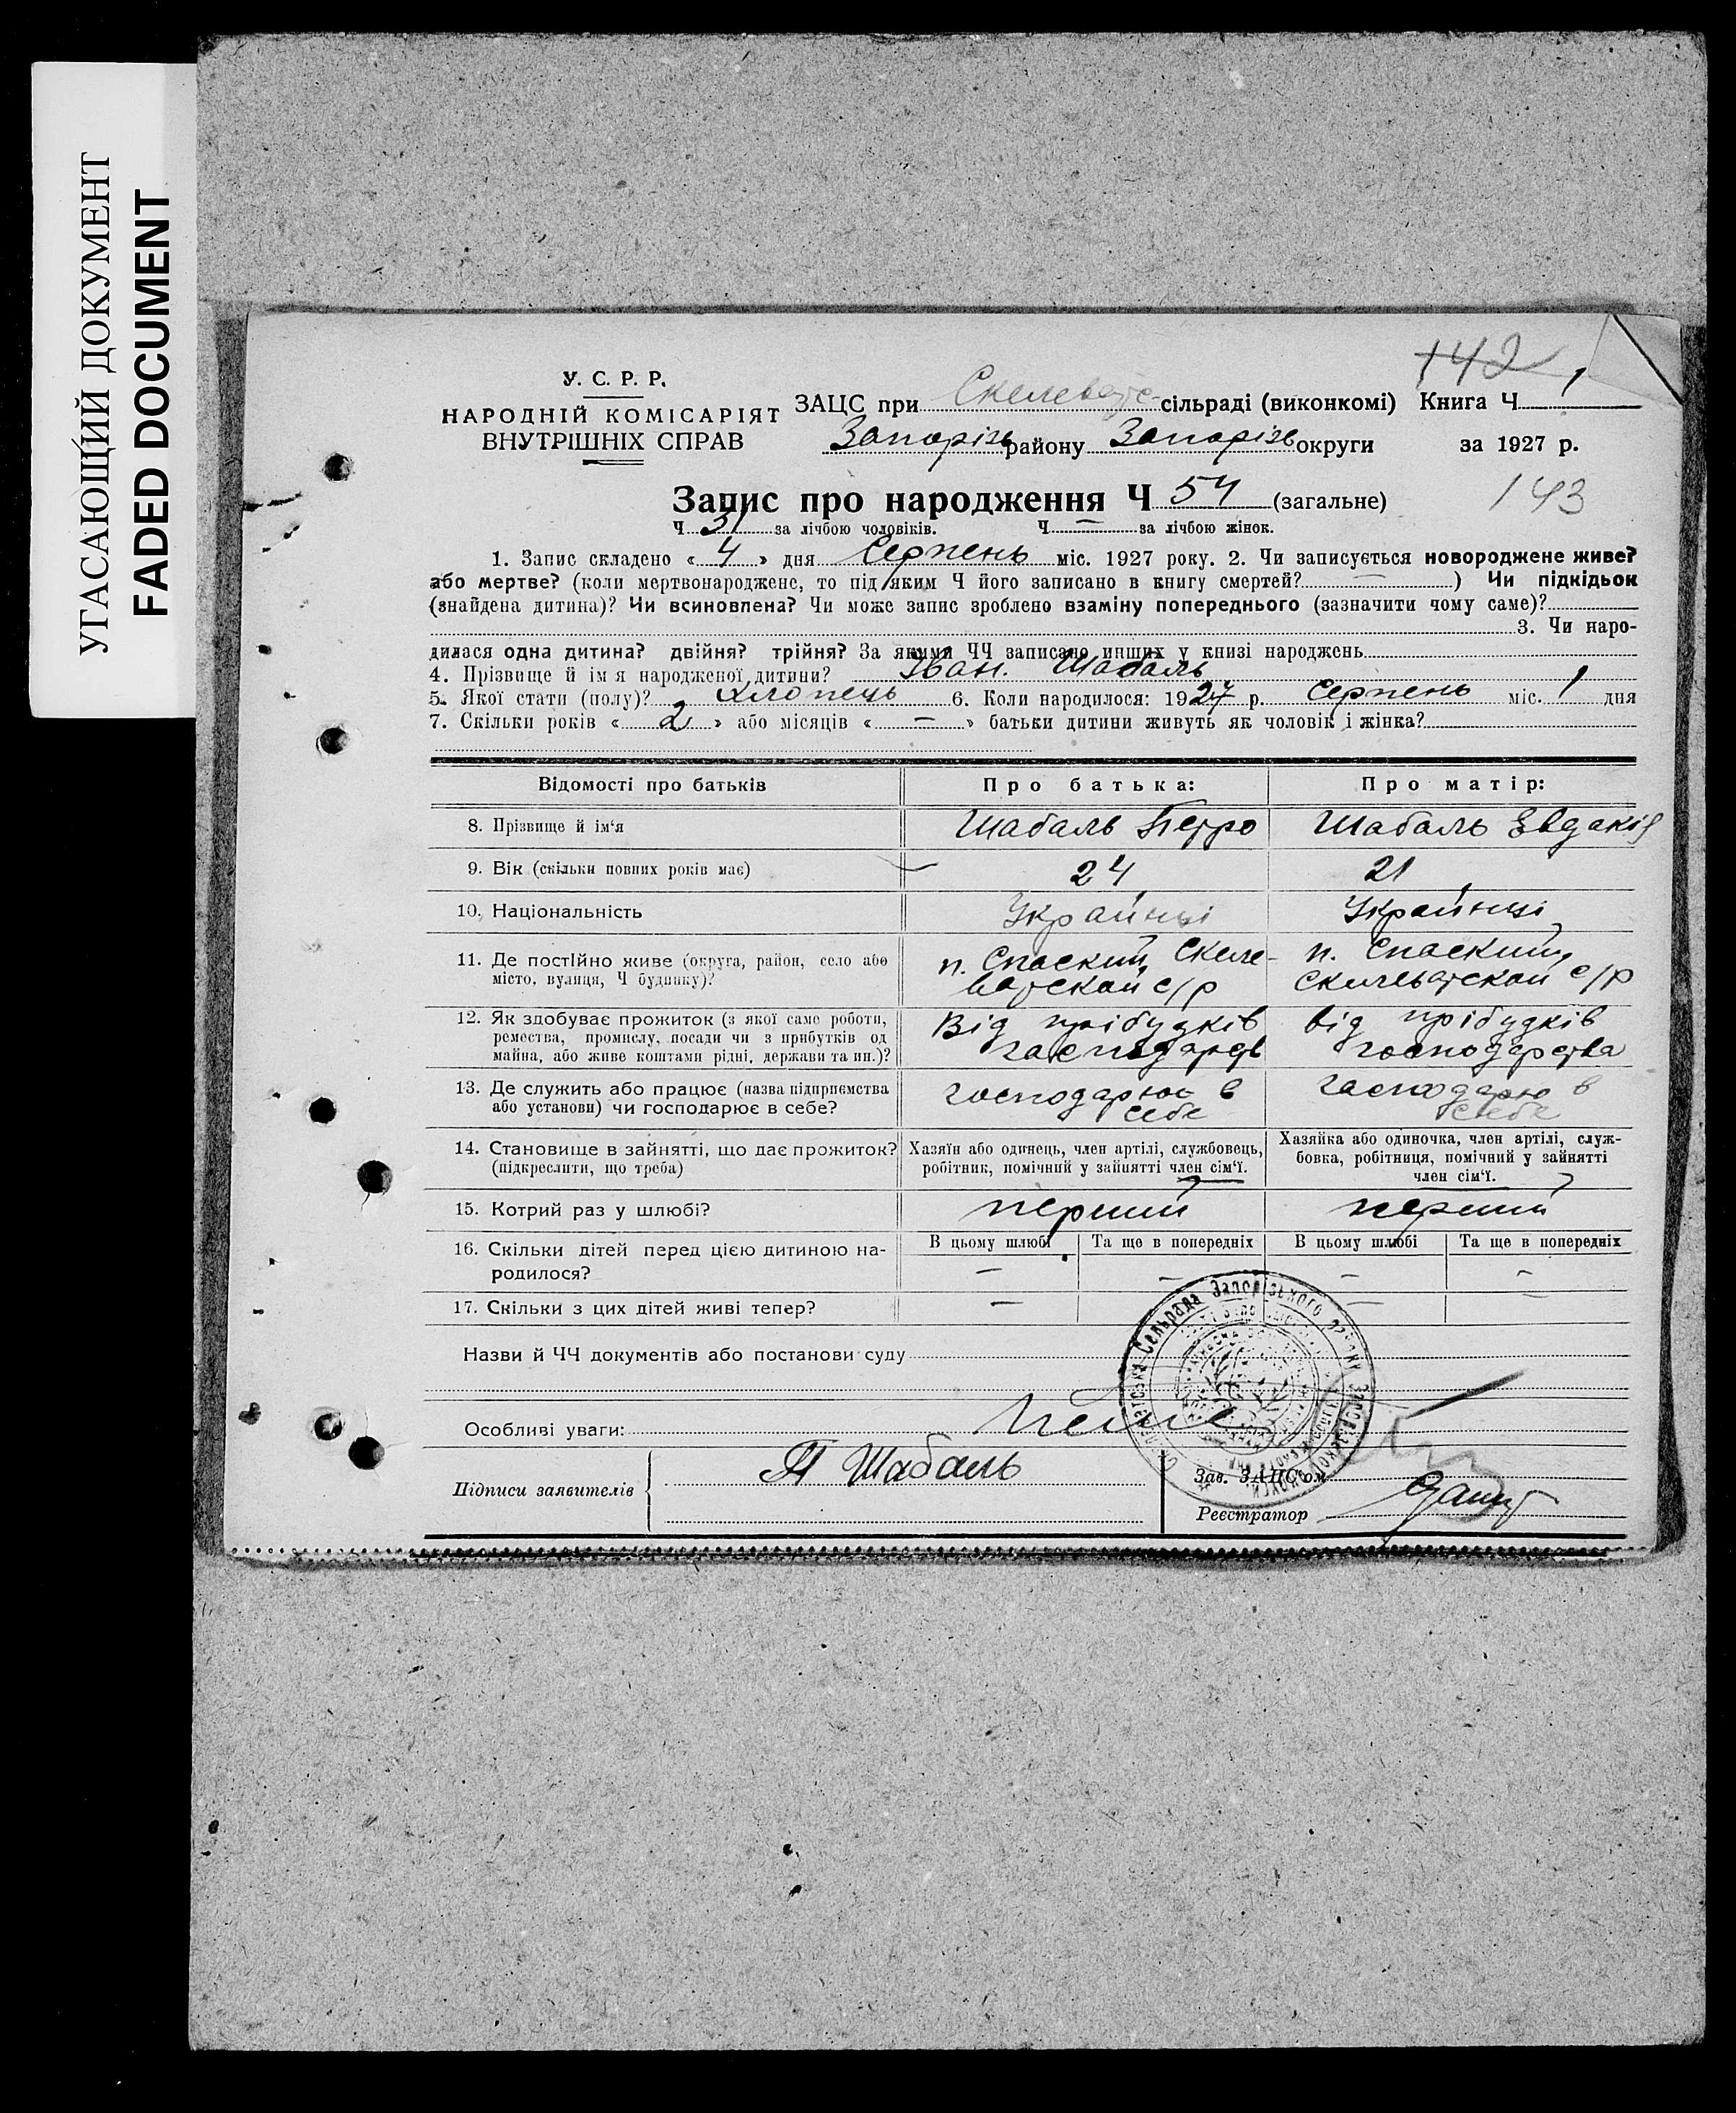 УГАСАЮЩИЙ ДОКУМЕНТ
FADED DOCUMENT
142 1
У. С. Р. Р.
НАРОДНІЙ КОМІСАРІЯТ
ВНУТРІШНІХ СПРАВ
ЗАЦС при Скелеватс- сільраді (виконкомі) Книга Ч.
Запорізь району Запорізь округи за 1927 р.
Запис про народження Ч 54 (загальне) 143
Ч 31 за лічбою чоловіків. Ч — за лічбою жінок.
1. Запис складено « 4 » дня Серпень міс. 1927 року. 2. Чи записується новороджене живе?
або мертве? (коли мертвонароджене, то під яким Ч його записано в книгу смертей? — ) Чи підкідьок
(знайдена дитина)? Чи всиновлена? Чи може запис зроблено взаміну попереднього (зазначити чому саме)?
3. Чи наро-
дилася одна дитина? двійня? трійня? За якими ЧЧ записано инших у книзі народжень
4. Прізвище й ім'я народженої дитини? Іван. Шабаль
5. Якої стати (полу)? Хлопець 6. Коли народилося: 1927 р. Серпень міс. 1 дня
7. Скільки років « 2 » або місяців « — » батьки дитини живуть як чоловік і жінка?
Відомості про батьків Про батька: Про матір:
8. Прізвище й ім'я Шабаль Петро Шабаль Евдакія
9. Вік (скільки повних років має) 24 21
10. Національність Украйнці Украйнці
11. Де постійно живе (округа, район, село або п. Спаский Скеле- п. Спаский
місто, вулиця, Ч будинку)? ватской с/р Скилеватской с/р
12. Як здобуває прожиток (з якої саме роботи, Від прібудків від прібудків
ремества, промислу, посади чи з прибутків од господарств господарства
майна, або живе коштами рідні, держави та ин.)?
13. Де служить або працює (назва підприємства господарює в господарю в
або установи) чи господарює в себе? себе себе
14. Становище в зайнятті, що дає прожиток? Хазяїн або одинець, член артілі, службовець, Хазяйка або одиночка, член артілі, служ-
(підкреслити, що треба) робітник, помічний у зайнятті член сім'ї. бовка, робітниця, помічний у зайнятті
член сім'ї.
15. Котрий раз у шлюбі? перший перший
16. Скільки дітей перед цією дитиною на- В цьому шлюбі Та ще в попередніх В цьому шлюбі Та ще в попередніх
родилося? — — — —
17. Скільки з цих дітей живі тепер? — — —
Назви й ЧЧ документів або постанови суду
Особливі уваги:
Підписи заявителів П Шабаль
Зав. ЗАЦС'ом
Реєстратор
Сельрада Запорізького району Запорізької округи